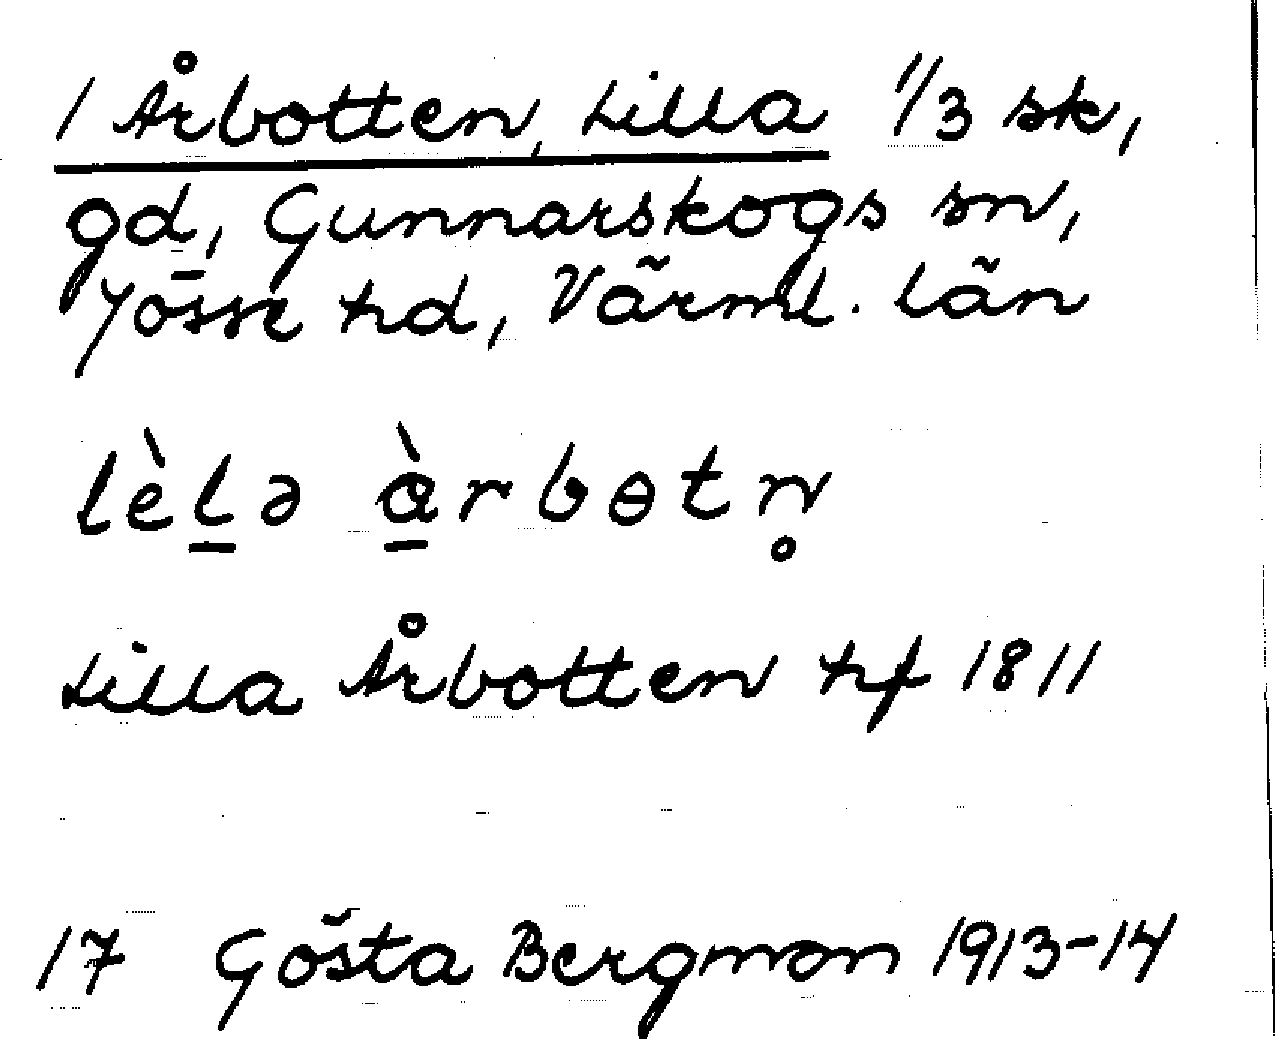 1 Årbotten, Lilla 1/3 sk,
gd, Gunnarskogs sn,
Jösse hd, Värml. län
lèl̠ə ɑ̠̀rbɵtn̥
Lilla Årbotten hf 1811
17 Gösta Bergman 1913-14